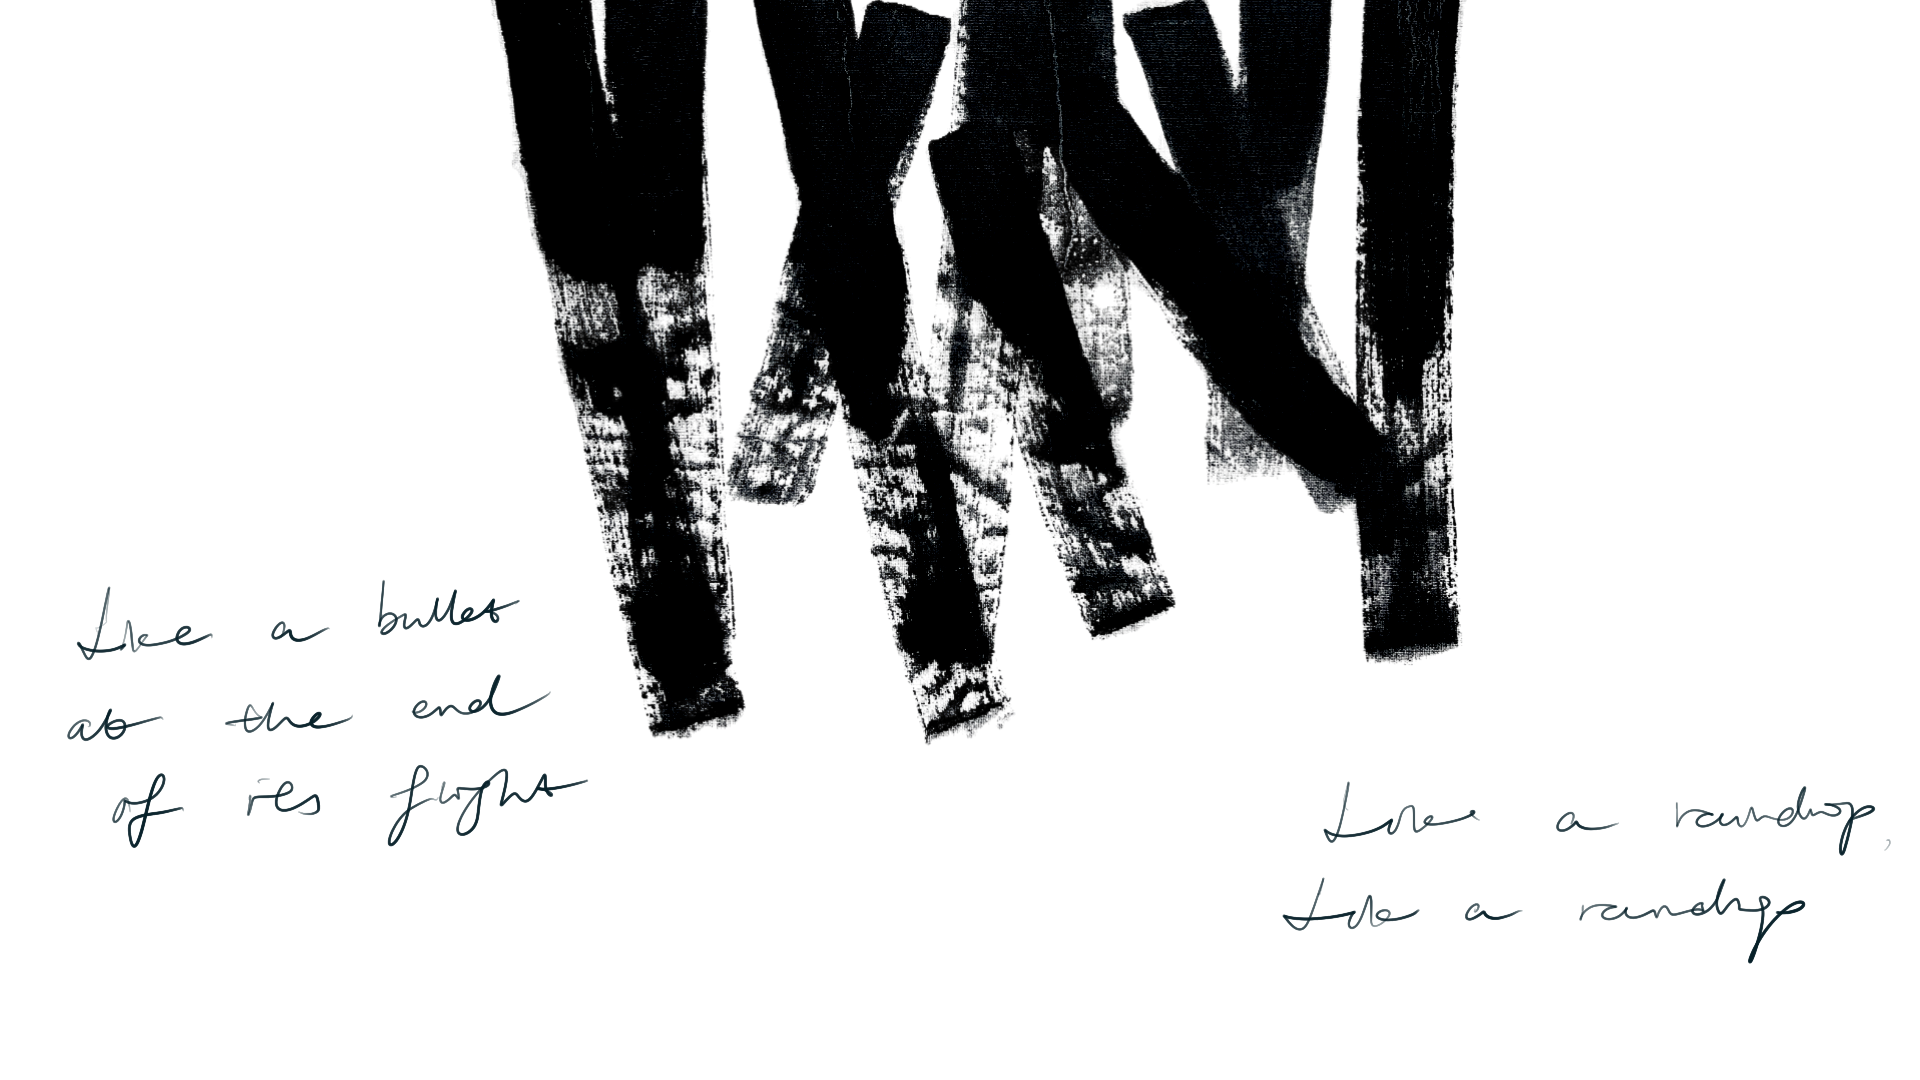 Like a bullet
at the end
of its flight
Like a raindrop,
Like a raindrop